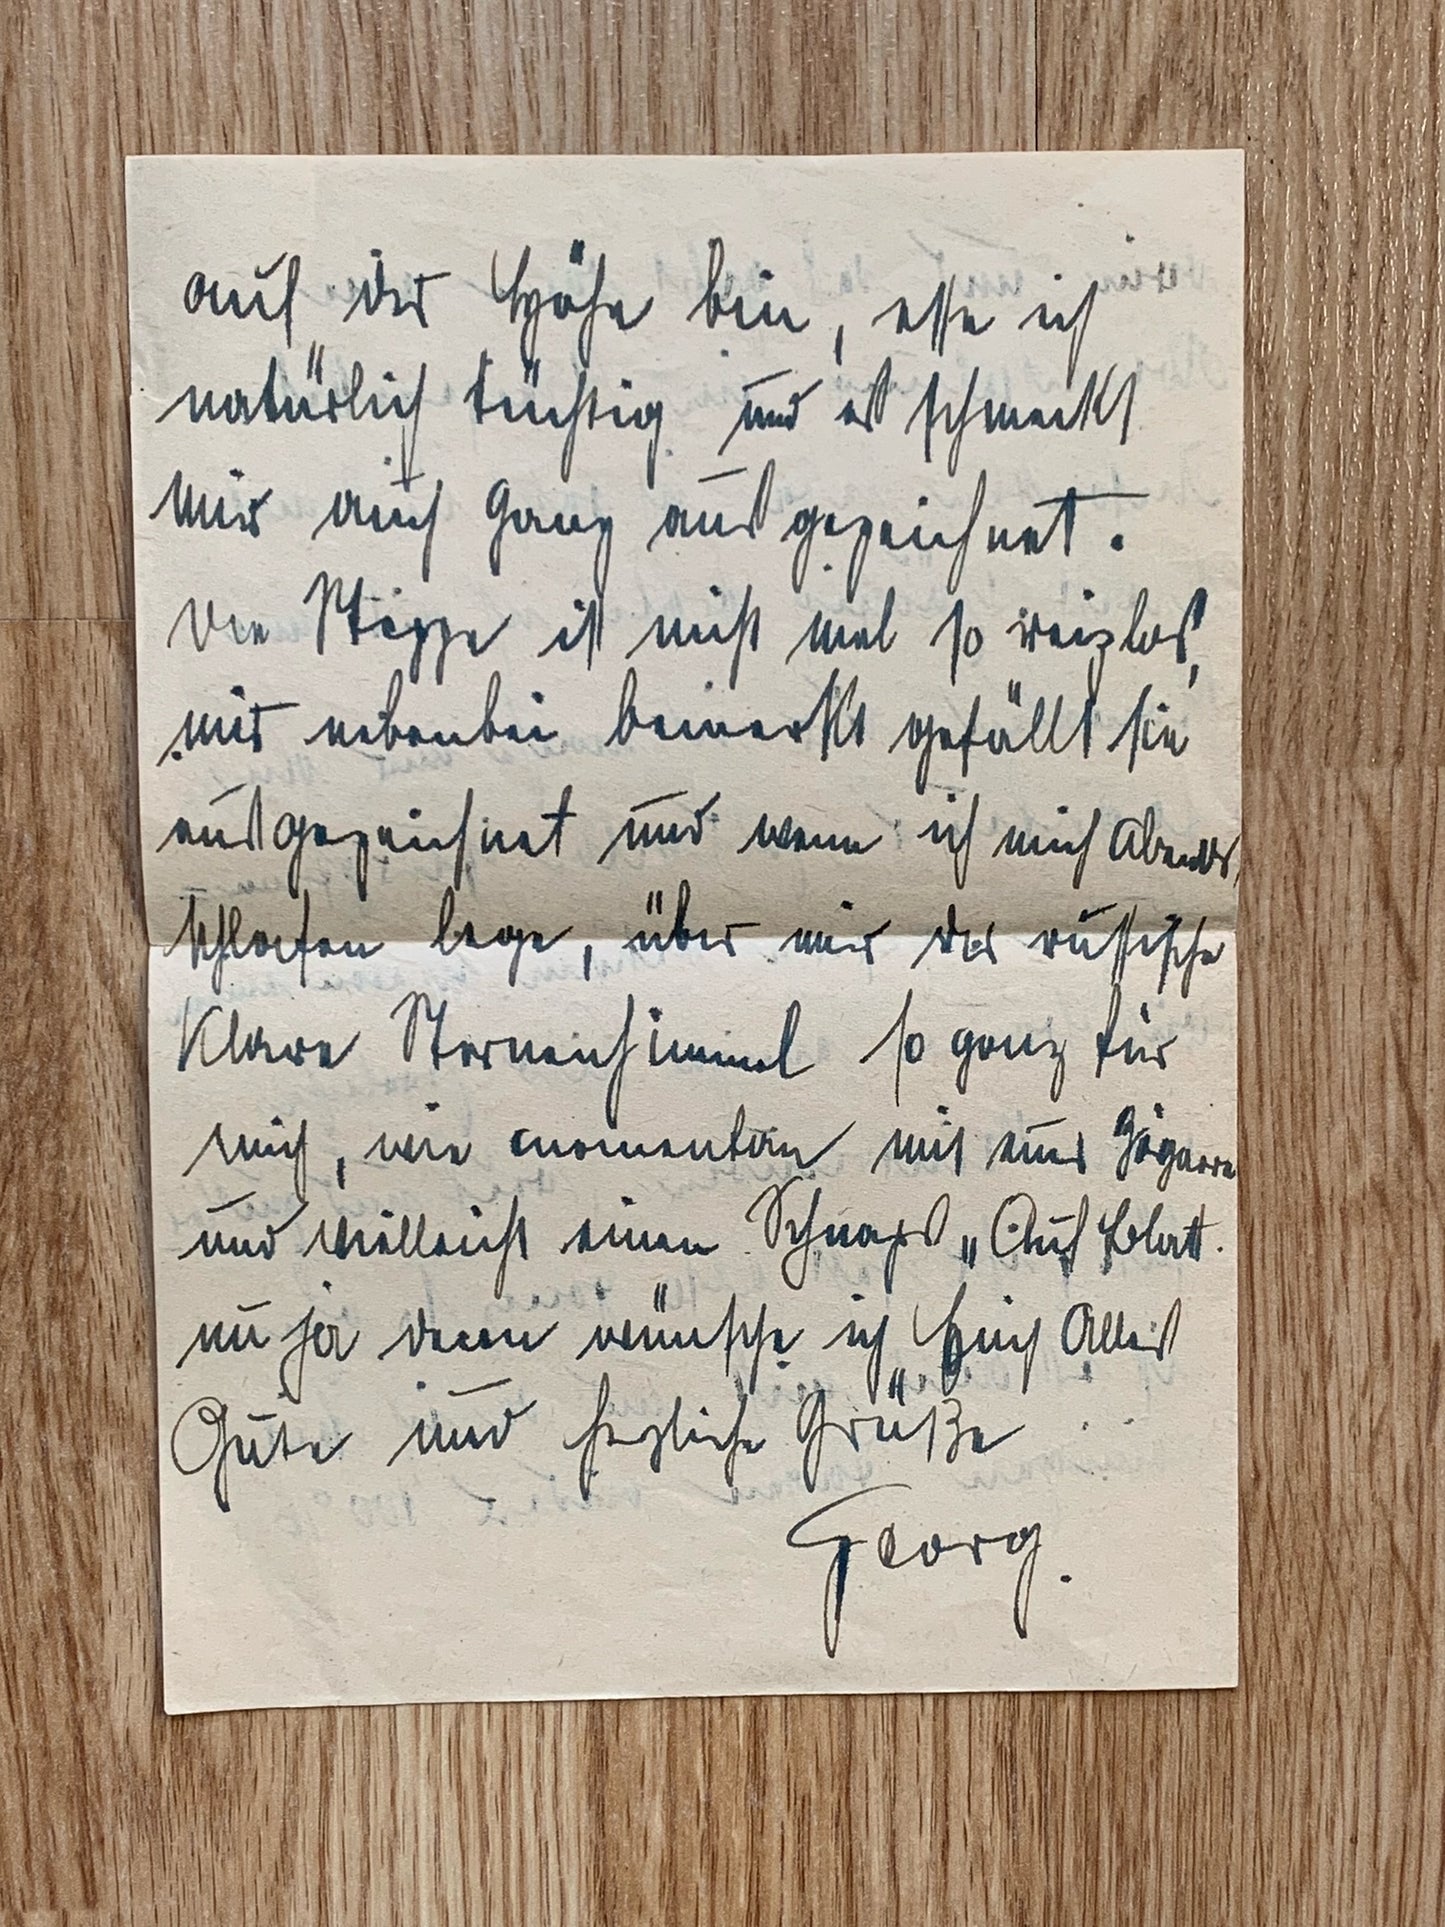 auf der Höhe bin, esse ich
natürlich tüchtig und es schmeckt
mir auch ganz ausgezeichnet.
Die Steppe ist nicht mal so reizlos,
mir nebenbei bemerkt gefällt sie
ausgezeichnet und wenn ich mich Abends
schlafen lege, über mir der russische
klare Sternenhimmel so ganz für
mich, wie momentan mit einer Zigarre
und vielleicht einen Schnaps „Auf
nu ja denn wünsche ich Alles
Gute und herzliche Grüße
Georg.